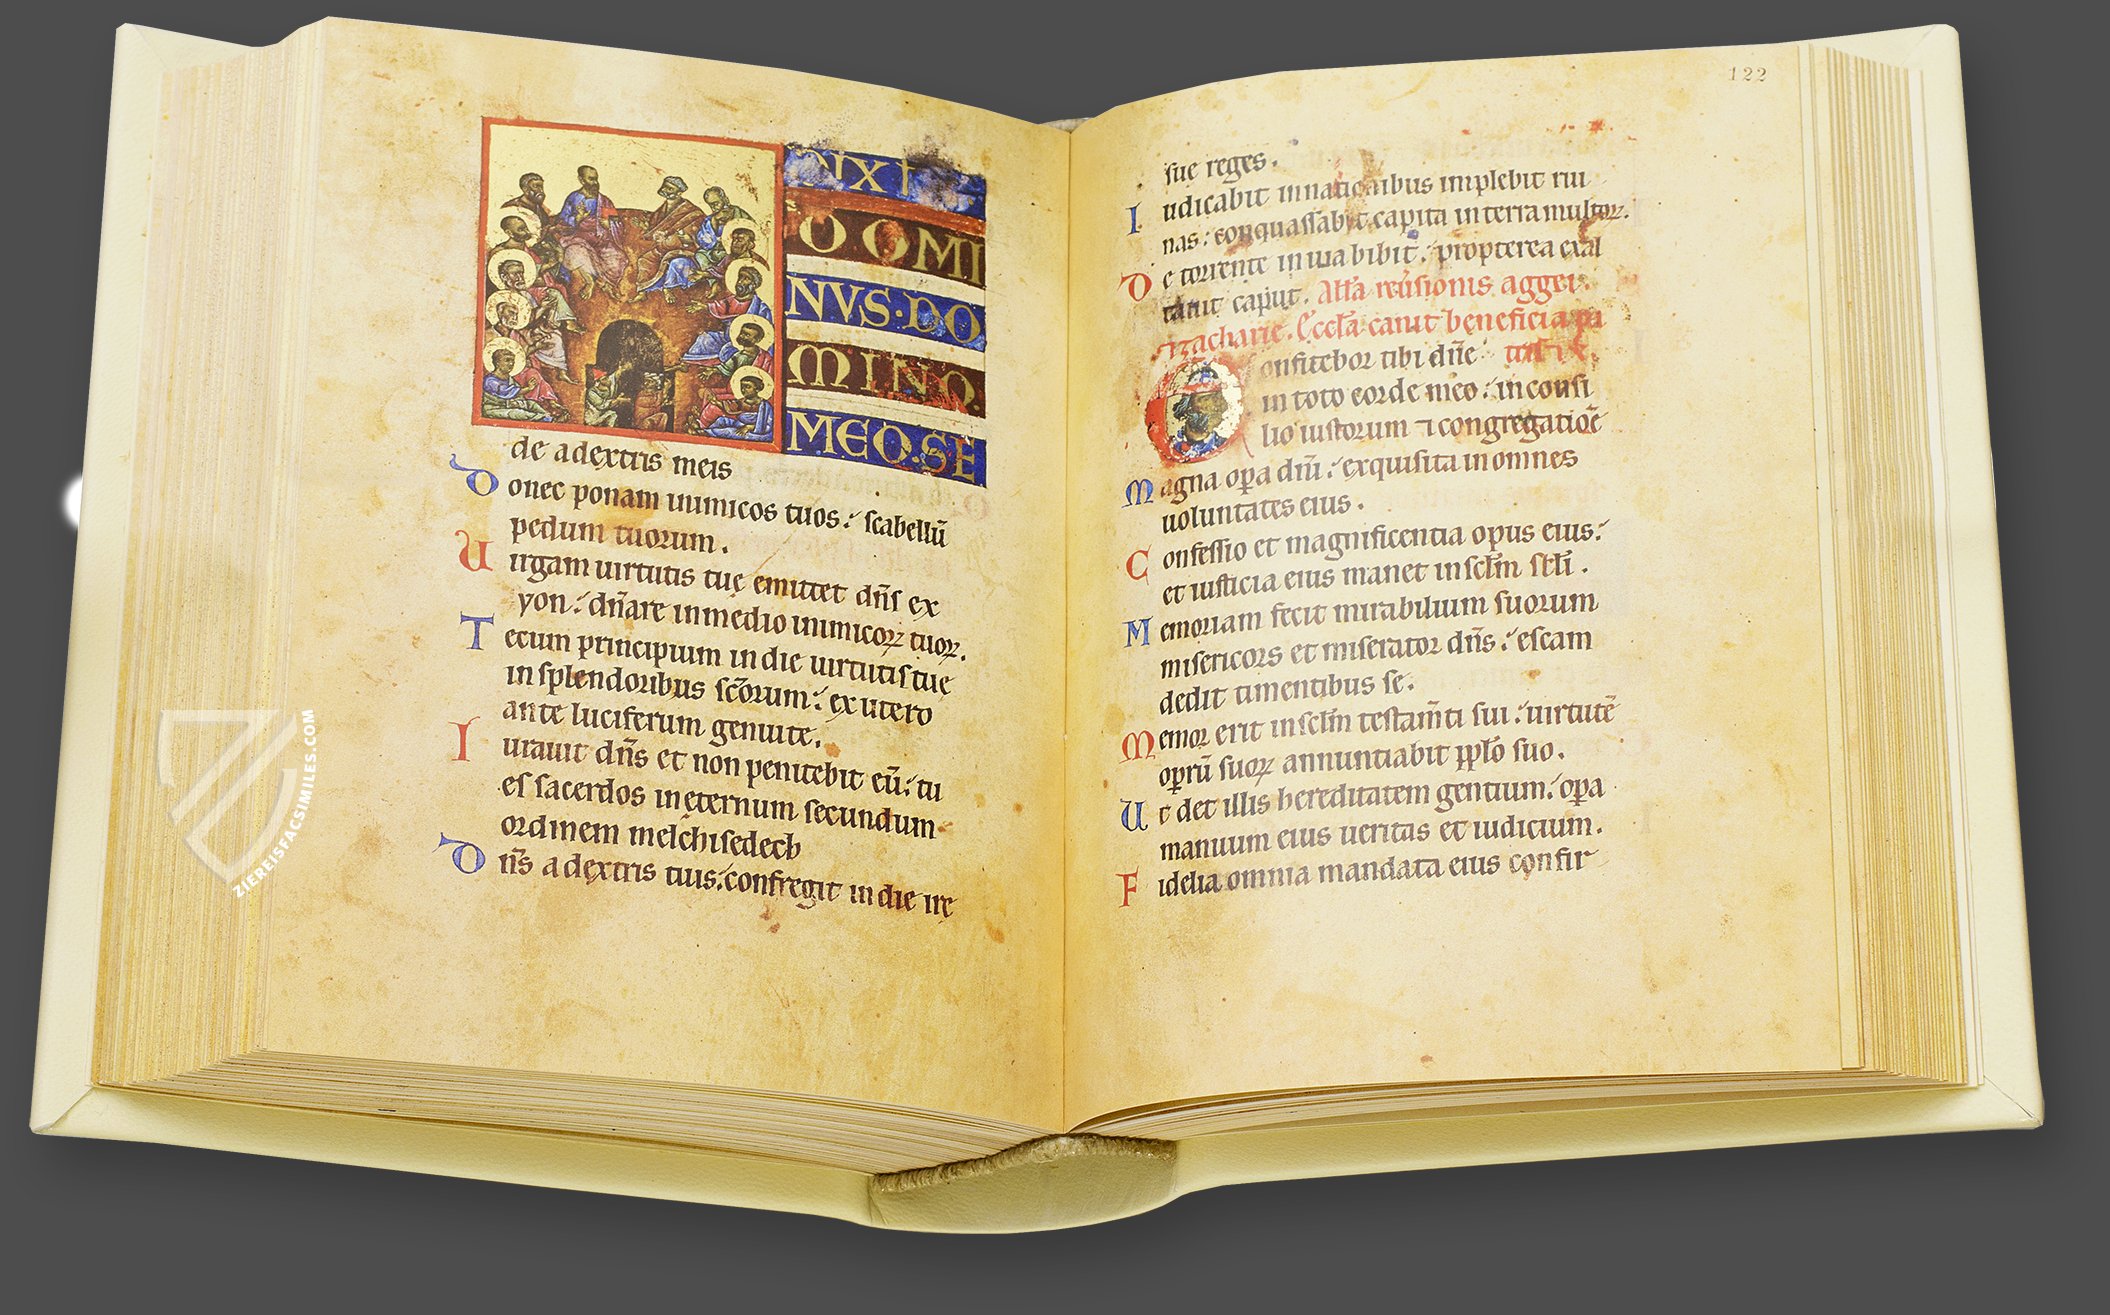 DIXI
DOMI
NVS·DO
MINO
MEO·SE
de a dextris meis
Donec ponam inimicos tuos: scabellū
pedum tuorum.
Uirgam uirtutis tuę emittet dn̄s ex
syon: dn̄are in medio inimicoꝝ tuoꝝ.
Tecum principium in die uirtutis tue
in splendoribus sc̄orum: ex utero
ante luciferum genui te.
Iurauit dn̄s et non penitebit eū: tu
es sacerdos in ęternum secundum
ordinem melchisedech
Dn̄s a dextris tuis: confregit in die irę
122
sue reges.
Iudicabit in nationibus implebit rui
nas: conquassabit capita in terra multoꝝ.
De torrente in uia bibit: propterea exal
tauit caput. All̄a reu̾sionis aggei
zacharie. Eccl̄a canit beneficia
Confitebor tibi dn̄e
in toto corde meo: in consi
lio iustorum ⁊ congregatiōe
Magna oꝑa dn̄i: exquisita in omnes
uoluntates eius.
Confessio et magnificentia opus eius:
et iusticia eius manet in sclm̄ scl̄i.
Memoriam fecit mirabilium suorum
misericors et miserator dn̄s: escam
dedit timentibus se.
Memor erit in sclm̄ testam̄ti sui: uirtutē
oꝑrū suoꝝ annuntiabit ppl̄o suo.
Ut det illis hereditatem gentium: oꝑa
manuum eius ueritas et iudicium.
Fidelia omnia mandata eius confir
ZIEREISFACSIMILES.COM